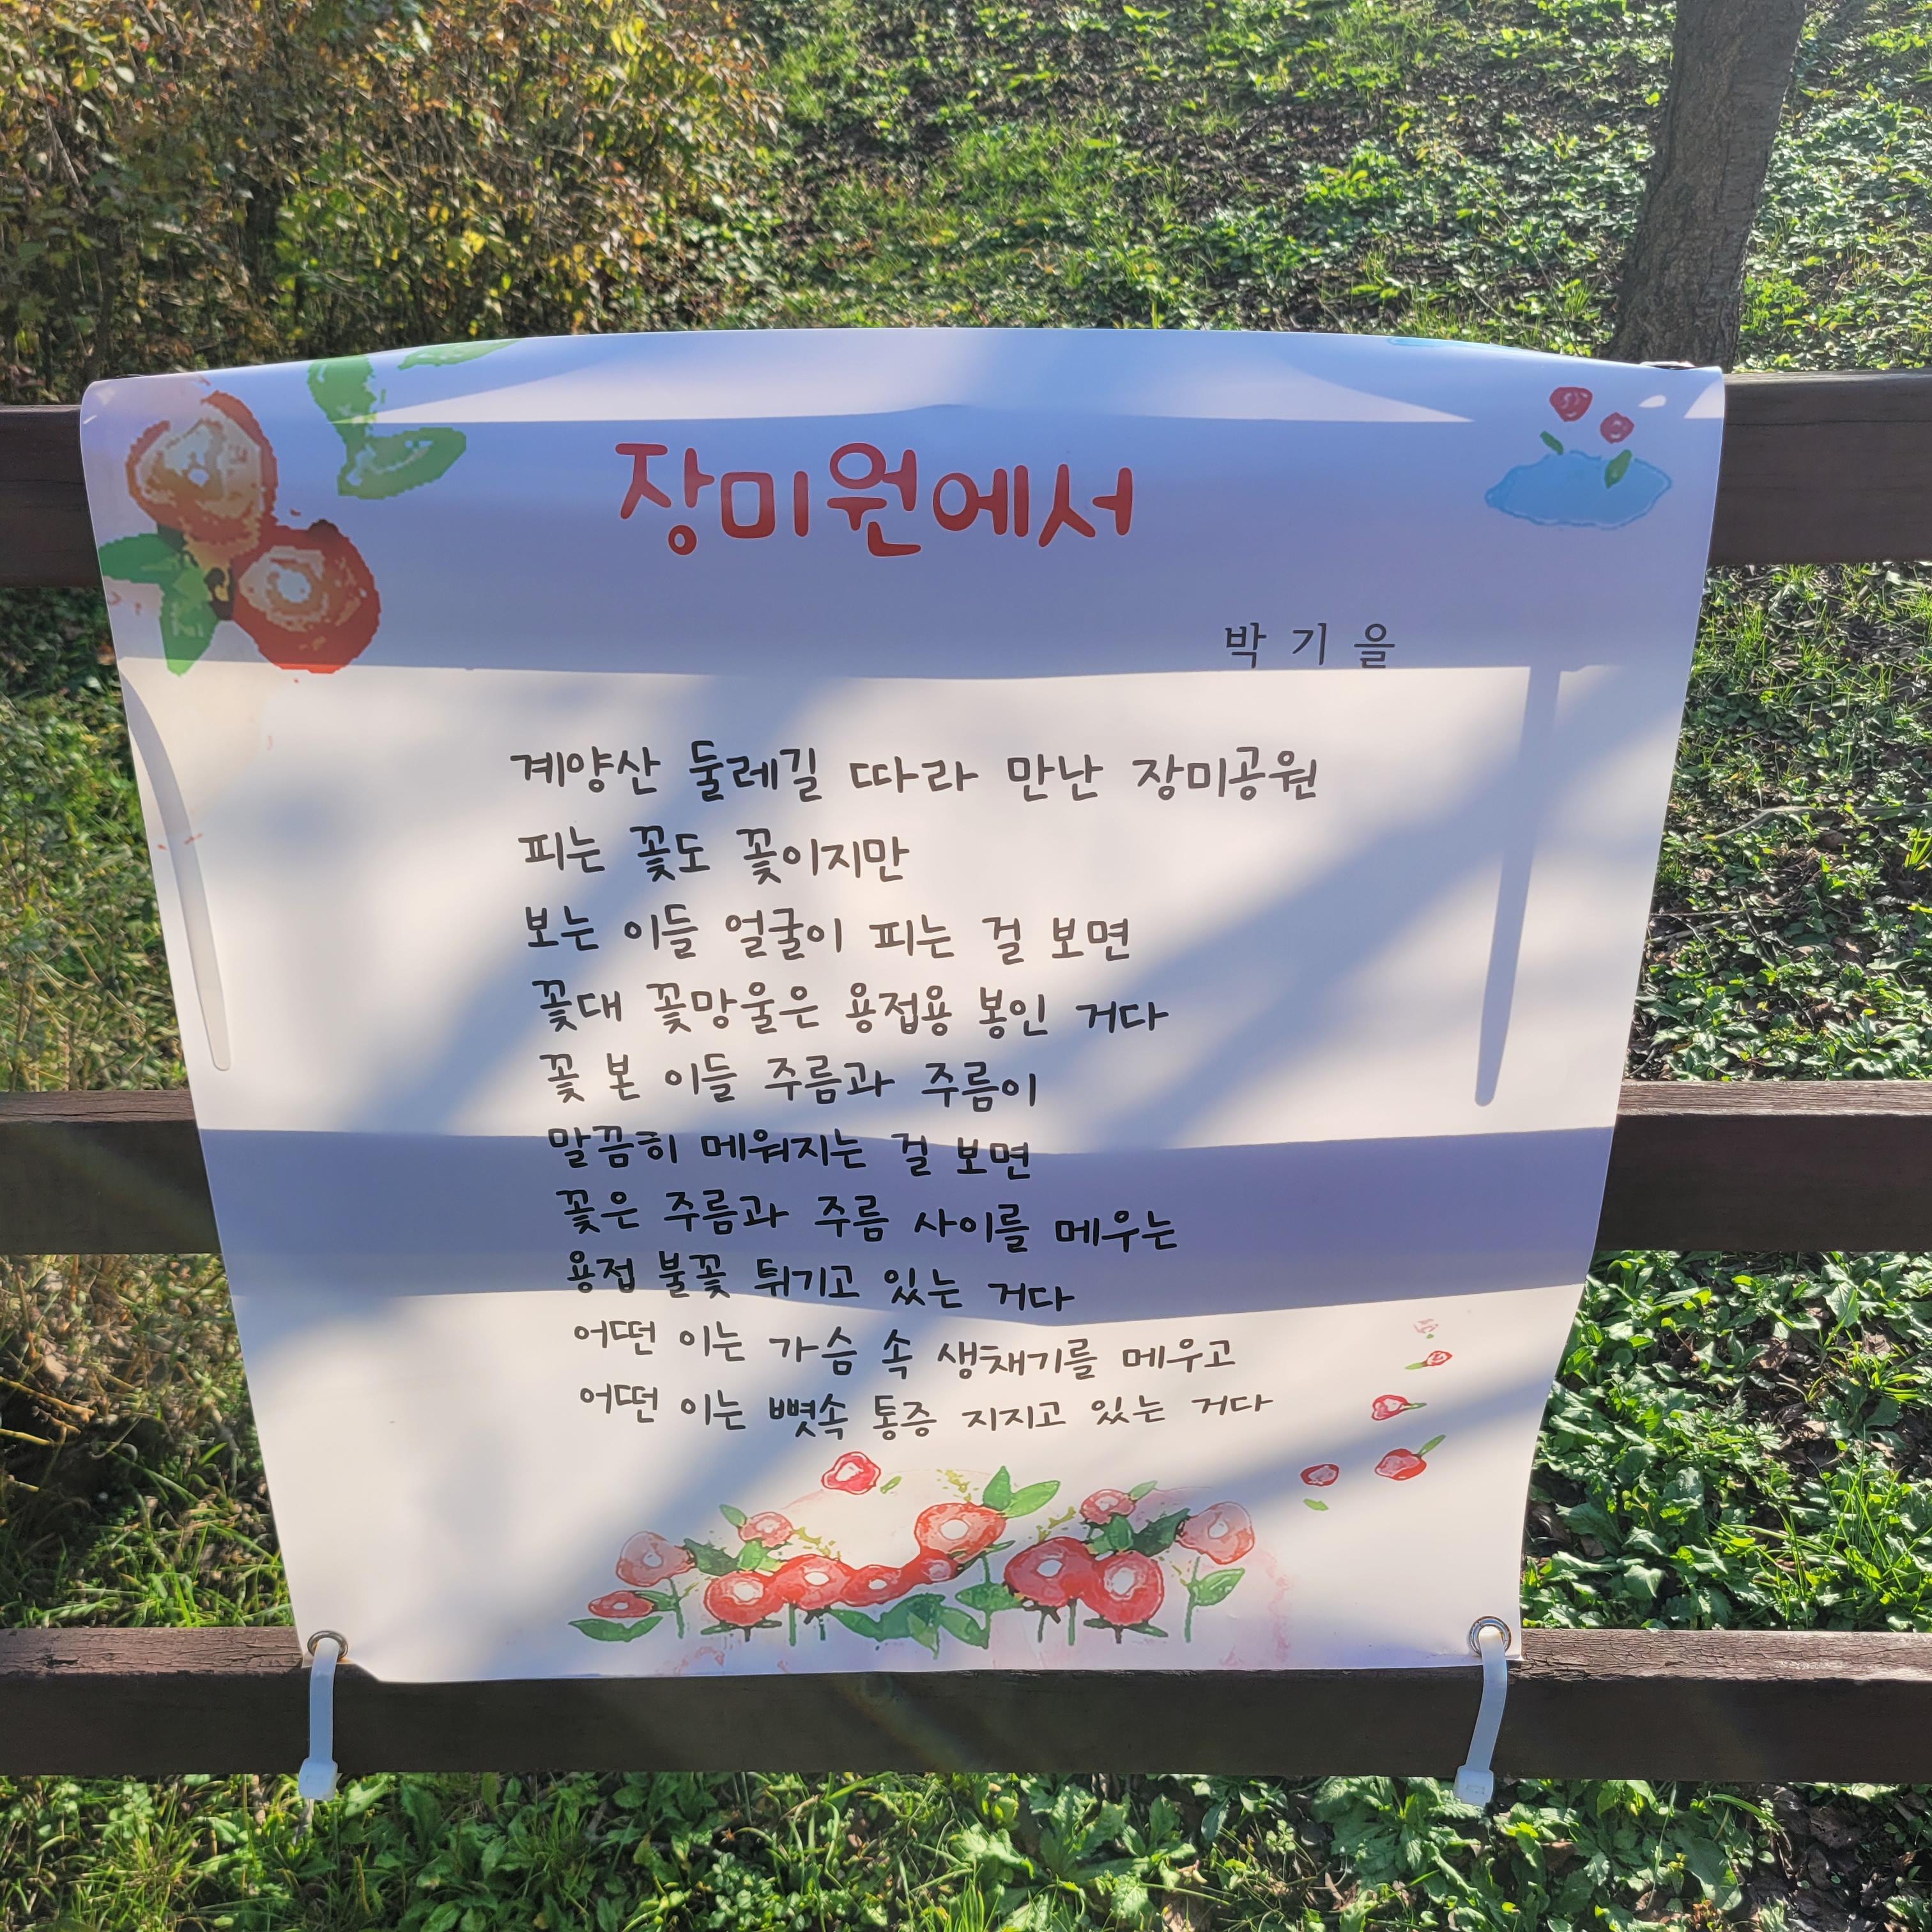 장미원에서
박기을
계양산 둘레길 따라 만난 장미공원
피는 꽃도 꽃이지만
보는 이들 얼굴이 피는 걸 보면
꽃대 꽃망울은 용접용 봉인 거다
꽃 본 이들 주름과 주름이
말끔히 메워지는 걸 보면
꽃은 주름과 주름 사이를 메우는
용접 불꽃 튀기고 있는 거다
어떤 이는 가슴 속 생채기를 메우고
어떤 이는 뼛속 통증 지지고 있는 거다